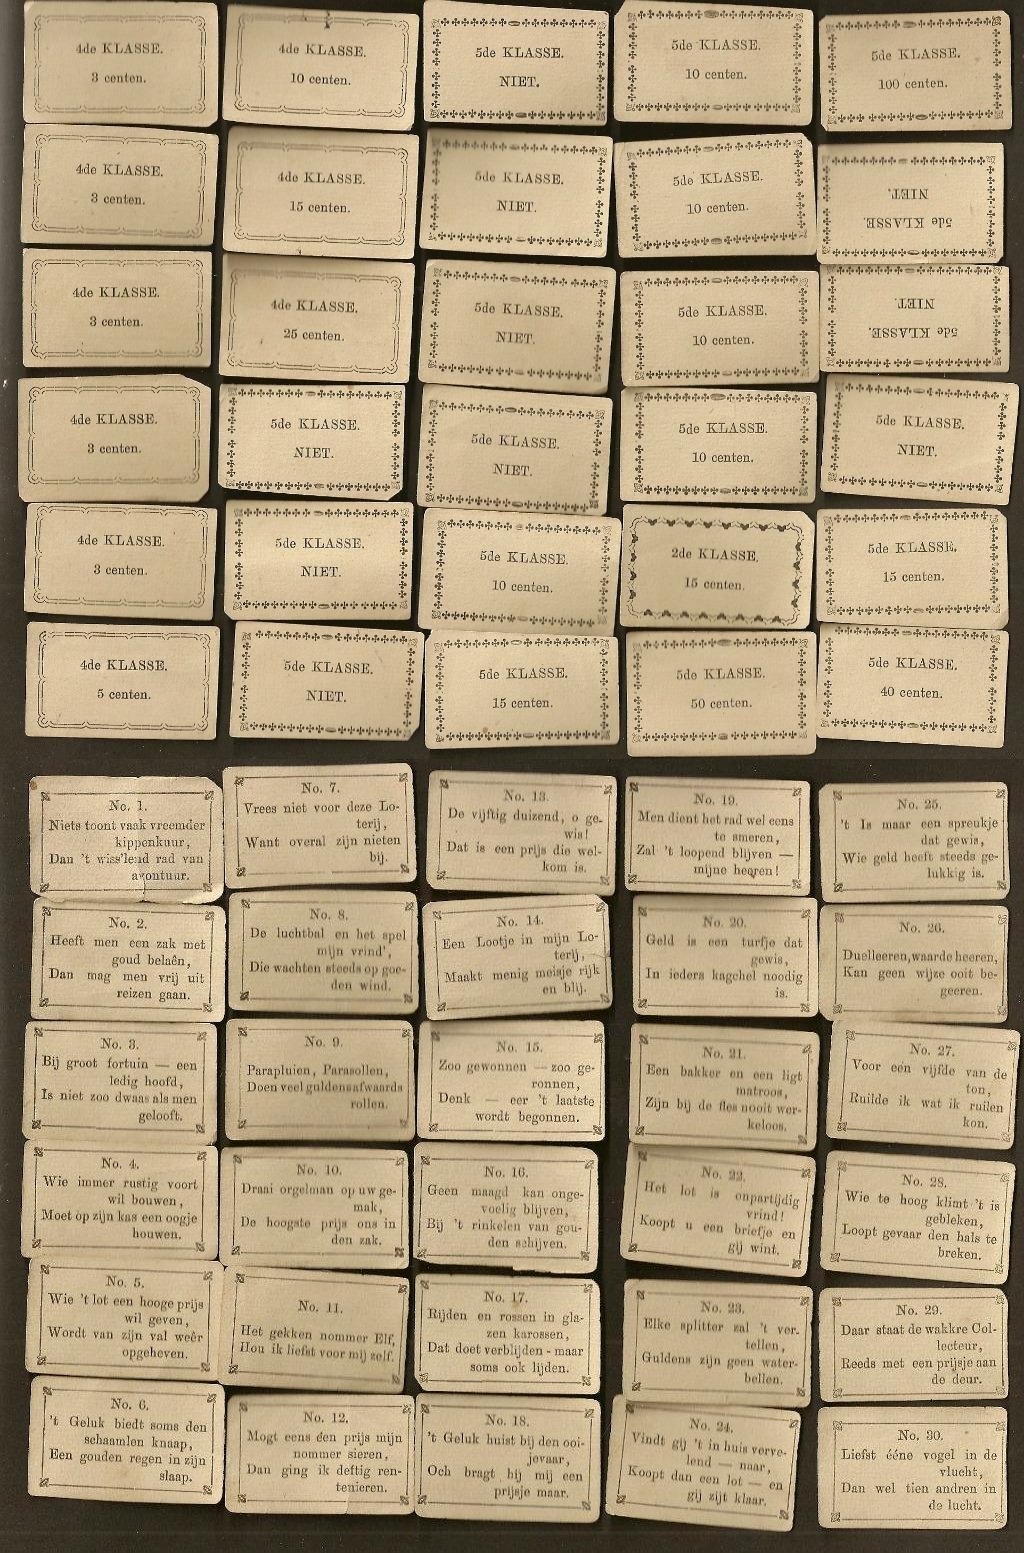 4de KLASSE.
3 centen.
4de KLASSE.
10 centen.
5de KLASSE.
NIET.
5de KLASSE.
10 centen.
5de KLASSE.
100 centen.
4de KLASSE.
3 centen.
4de KLASSE.
15 centen.
5de KLASSE.
NIET.
5de KLASSE.
10 centen.
5de KLASSE.
NIET.
4de KLASSE.
3 centen.
4de KLASSE.
25 centen.
5de KLASSE.
NIET.
5de KLASSE.
10 centen.
5de KLASSE.
NIET.
4de KLASSE.
3 centen.
5de KLASSE.
NIET.
5de KLASSE.
NIET.
5de KLASSE.
10 centen.
5de KLASSE.
NIET.
4de KLASSE.
3 centen.
5de KLASSE.
NIET.
5de KLASSE.
10 centen.
2de KLASSE.
15 centen.
5de KLASSE.
15 centen.
4de KLASSE.
5 centen.
5de KLASSE.
NIET.
5de KLASSE.
15 centen.
5de KLASSE.
50 centen.
5de KLASSE.
40 centen.
No. 1.
Niets toont vaak vreemder
kippenkuur,
Dan 't wiss'lend rad van
avontuur.
No. 7.
Vrees niet voor deze Lo-
terij,
Want overal zijn nieten
bij.
No. 13.
De vijftig duizend, o ge-
wis!
Dat is een prijs die wel-
kom is.
No. 19.
Men dient het rad wel eens
te smeren,
Zal 't loopend blijven —
mijne heeren!
No. 25.
't Is maar een spreukje
dat gewis,
Wie geld heeft steeds ge-
lukkig is.
No. 2.
Heeft men een zak met
goud belaên,
Dan mag men vrij uit
reizen gaan.
No. 8.
De luchtbal en het spel
mijn vrind',
Die wachten steeds op goe-
den wind.
No. 14.
Een Lootje in mijn Lo-
terij,
Maakt menig meisje rijk
en blij.
No. 20.
Geld is een turfje dat
gewis,
In ieders kagchel noodig
is.
No. 26.
Duelleeren, waarde heeren,
Kan geen wijze ooit be-
geeren.
No. 3.
Bij groot fortuin — een
ledig hoofd,
Is niet zoo dwaas als men
gelooft.
No. 9.
Parapluien, Parasollen,
Doen veel guldens afwaards
rollen.
No. 15.
Zoo gewonnen — zoo ge-
ronnen,
Denk — eer 't laatste
wordt begonnen.
No. 21.
Een bakker en een ligt
matroos,
Zijn bij de fles nooit wer-
keloos.
No. 27.
Voor een vijfde van de
ton,
Ruilde ik wat ik ruilen
kon.
No. 4.
Wie immer rustig voort
wil bouwen,
Moet op zijn kas een oogje
houwen.
No. 10.
Draai orgelman op uw ge-
mak,
De hoogste prijs ons in
den zak.
No. 16.
Geen maagd kan onge-
voelig blijven,
Bij 't rinkelen van gou-
den schijven.
No. 22.
Het lot is onpartijdig
vrind!
Koopt u een briefje en
gij wint.
No. 28.
Wie te hoog klimt 't is
gebleken,
Loopt gevaar den hals te
breken.
No. 5.
Wie 't lot een hooge prijs
wil geven,
Wordt van zijn val weêr
opgeheven.
No. 11.
Het gekken nommer Elf,
Hou ik liefst voor mij zelf.
No. 17.
Rijden en rossen in gla-
zen karossen,
Dat doet verblijden - maar
soms ook lijden.
No. 23.
Elke splitter zal 't ver-
tellen,
Guldens zijn geen water-
bellen.
No. 29.
Daar staat de wakkre Col-
lecteur,
Reeds met een prijsje aan
de deur.
No. 6.
't Geluk biedt soms den
schaamlen knaap,
Een gouden regen in zijn
slaap.
No. 12.
Mogt eens één prijs mijn
nommer sieren,
Dan ging ik deftig ren-
tenieren.
No. 18.
't Geluk huist bij den ooi-
jevaar,
Och bragt hij mij een
prijsje maar.
No. 24.
Vindt gij 't in huis verve-
lend — naar,
Koopt dan een lot — en
gij zijt klaar.
No. 30.
Liefst ééne vogel in de
vlucht,
Dan wel tien andren in
de lucht.